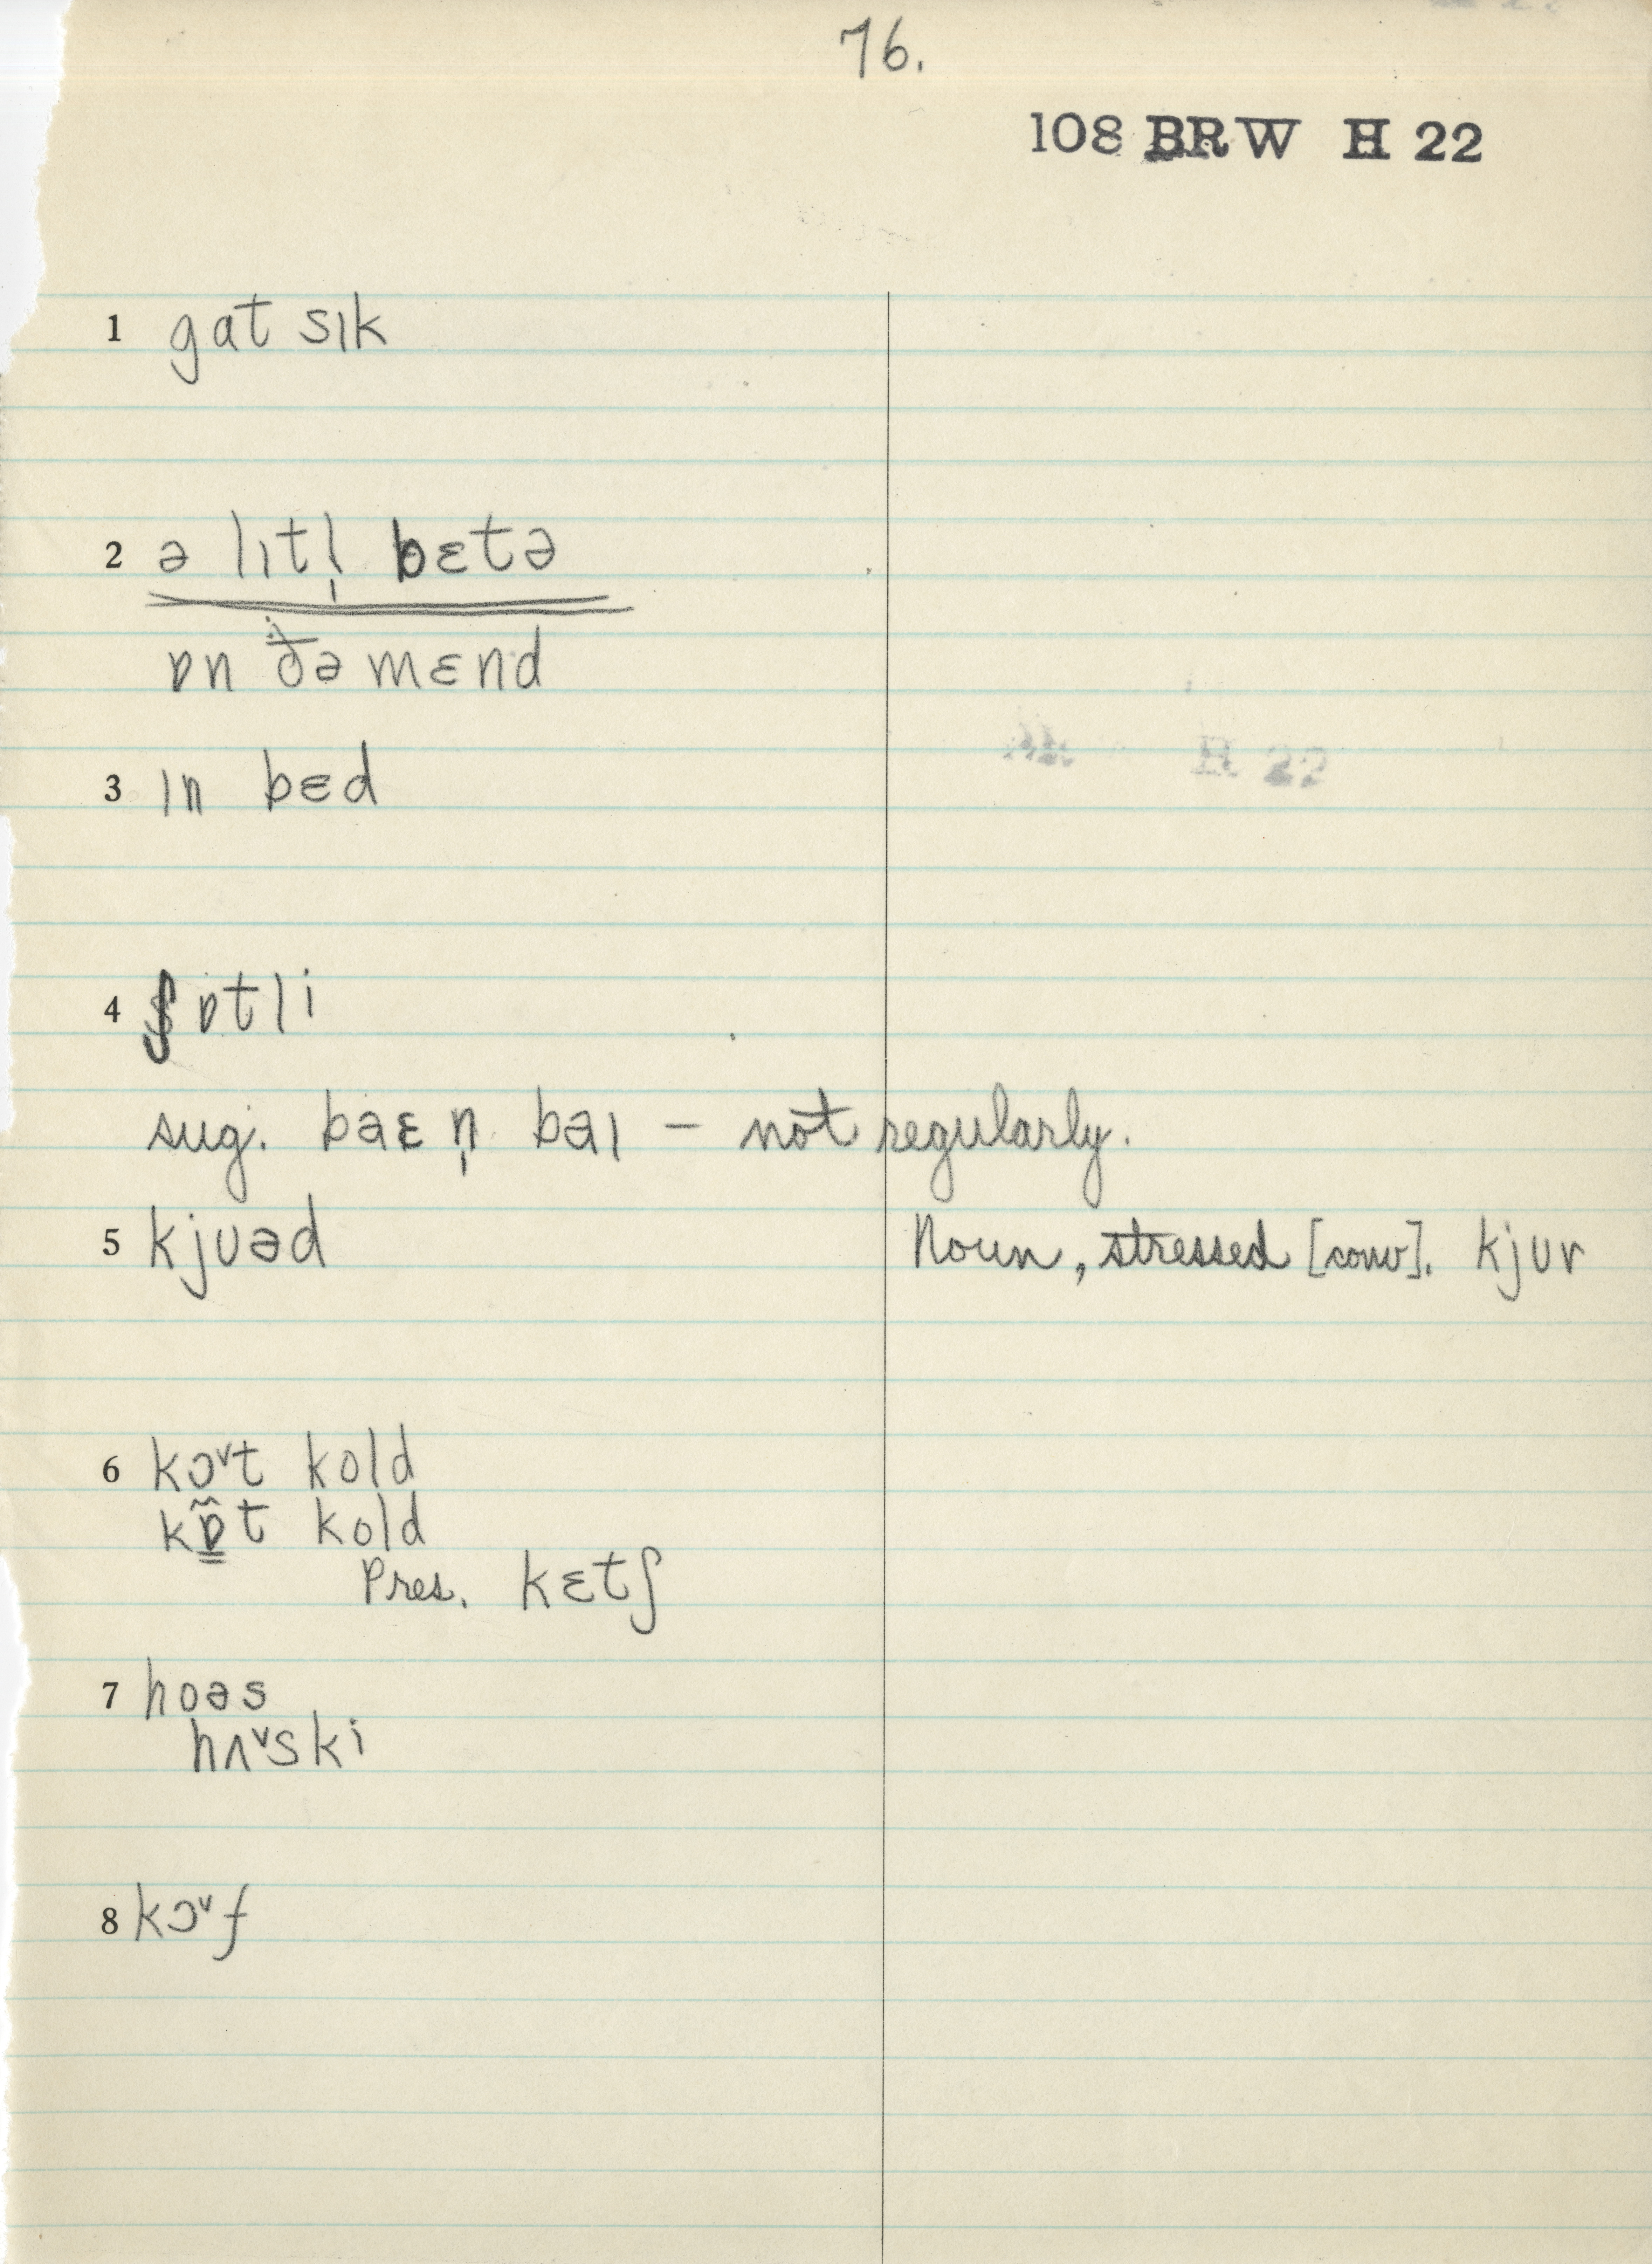 76.
108 BRW H 22
1 gat sɪk
2 ə lɪtl̩ bɛtə
ɒn ðə mɛnd
3 ɪn bɛd
H 22
4 ʃɒtli
sug. baɛn̩ baɪ – not regularly.
5 kjʊəd Noun, stressed [conv]. kjʊr
6 kɔ˅t kold
kɒ̳̃t kold
Pres. kɛtʃ
7 hoəs
hʌ˅ski
8 kɔ˅f